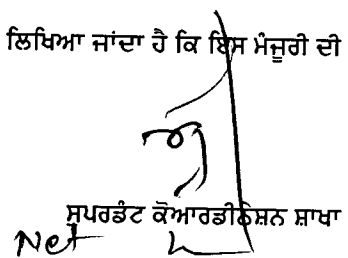 ਲਿਖਿਆ ਜਾਂਦਾ ਹੈ ਕਿ ਇਸ ਮੰਜੂਰੀ ਦੀ
ਸੁਪਰਡੰਟ ਕੋਆਰਡੀਨੇਸ਼ਨ ਸ਼ਾਖਾ
Net